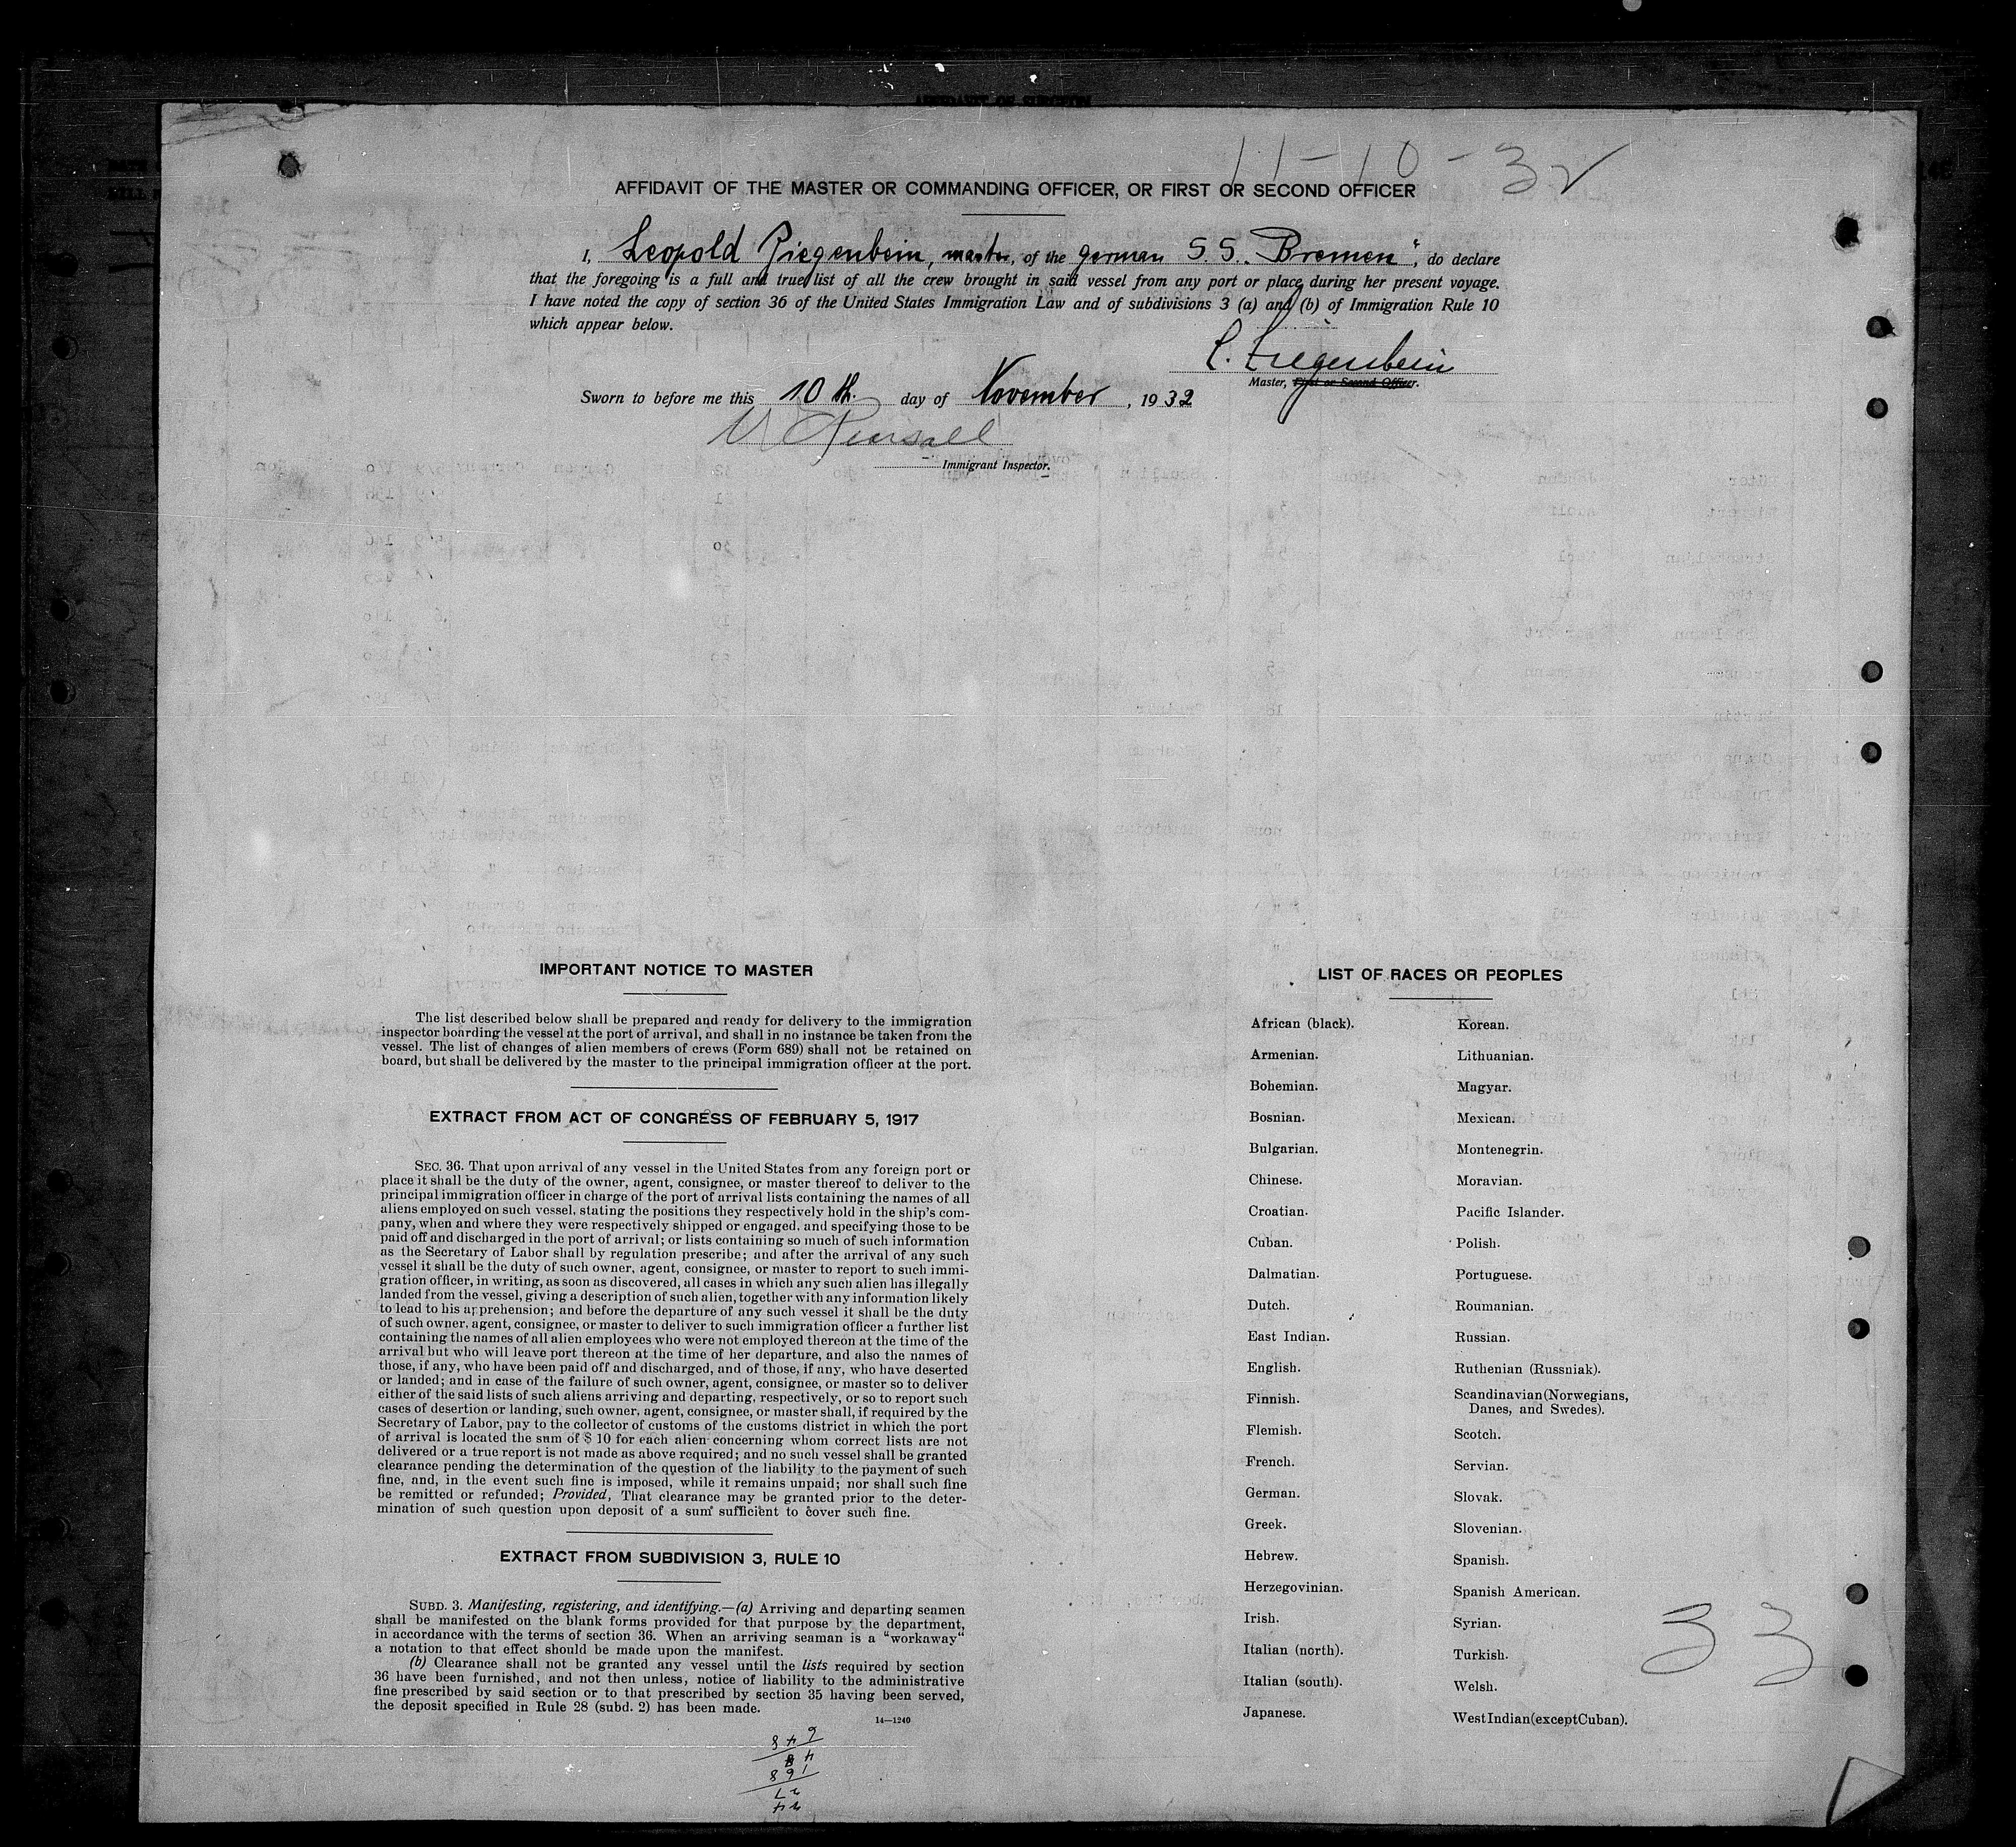 11-10-32
AFFIDAVIT OF THE MASTER OR COMMANDING OFFICER, OR FIRST OR SECOND OFFICER
I, Leopold Ziegenbein, master, of the german S.S. "Bremen", do declare
that the foregoing is a full and true list of all the crew brought in said vessel from any port or place during her present voyage.
I have noted the copy of section 36 of the United States Immigration Law and of subdivisions 3 (a) and (b) of Immigration Rule 10
which appear below.
L. Ziegenbein
Master, First or Second Officer.
Sworn to before me this 10th. day of November, 1932
Immigrant Inspector.
IMPORTANT NOTICE TO MASTER
The list described below shall be prepared and ready for delivery to the immigration
inspector boarding the vessel at the port of arrival, and shall in no instance be taken from the
vessel. The list of changes of alien members of crews (Form 689) shall not be retained on
board, but shall be delivered by the master to the principal immigration officer at the port.
EXTRACT FROM ACT OF CONGRESS OF FEBRUARY 5, 1917
SEC. 36. That upon arrival of any vessel in the United States from any foreign port or
place it shall be the duty of the owner, agent, consignee, or master thereof to deliver to the
principal immigration officer in charge of the port of arrival lists containing the names of all
aliens employed on such vessel, stating the positions they respectively hold in the ship's com-
pany, when and where they were respectively shipped or engaged, and specifying those to be
paid off and discharged in the port of arrival; or lists containing so much of such information
as the Secretary of Labor shall by regulation prescribe; and after the arrival of any such
vessel it shall be the duty of such owner, agent, consignee, or master to report to such immi-
gration officer, in writing, as soon as discovered, all cases in which any such alien has illegally
landed from the vessel, giving a description of such alien, together with any information likely
to lead to his apprehension; and before the departure of any such vessel it shall be the duty
of such owner, agent, consignee, or master to deliver to such immigration officer a further list
containing the names of all alien employees who were not employed thereon at the time of the
arrival but who will leave port thereon at the time of her departure, and also the names of
those, if any, who have been paid off and discharged, and of those, if any, who have deserted
or landed; and in case of the failure of such owner, agent, consignee, or master so to deliver
either of the said lists of such aliens arriving and departing, respectively, or so to report such
cases of desertion or landing, such owner, agent, consignee, or master shall, if required by the
Secretary of Labor, pay to the collector of customs of the customs district in which the port
of arrival is located the sum of $ 10 for each alien concerning whom correct lists are not
delivered or a true report is not made as above required; and no such vessel shall be granted
clearance pending the determination of the question of the liability to the payment of such
fine, and, in the event such fine is imposed, while it remains unpaid; nor shall such fine
be remitted or refunded; Provided, That clearance may be granted prior to the deter-
mination of such question upon deposit of a sum sufficient to cover such fine.
EXTRACT FROM SUBDIVISION 3, RULE 10
SUBD. 3. Manifesting, registering, and identifying.—(a) Arriving and departing seamen
shall be manifested on the blank forms provided for that purpose by the department,
in accordance with the terms of section 36. When an arriving seaman is a "workaway"
a notation to that effect should be made upon the manifest.
(b) Clearance shall not be granted any vessel until the lists required by section
36 have been furnished, and not then unless, notice of liability to the administrative
fine prescribed by said section or to that prescribed by section 35 having been served,
the deposit specified in Rule 28 (subd. 2) has been made.
14—1240
LIST OF RACES OR PEOPLES
African (black).
Armenian.
Bohemian.
Bosnian.
Bulgarian.
Chinese.
Croatian.
Cuban.
Dalmatian.
Dutch.
East Indian.
English.
Finnish.
Flemish.
French.
German.
Greek.
Hebrew.
Herzegovinian.
Irish.
Italian (north).
Italian (south).
Japanese.
Korean.
Lithuanian.
Magyar.
Mexican.
Montenegrin.
Moravian.
Pacific Islander.
Polish.
Portuguese.
Roumanian.
Russian.
Ruthenian (Russniak).
Scandinavian (Norwegians,
Danes, and Swedes).
Scotch.
Servian.
Slovak.
Slovenian.
Spanish.
Spanish American.
Syrian.
Turkish.
Welsh.
West Indian (except Cuban).
33